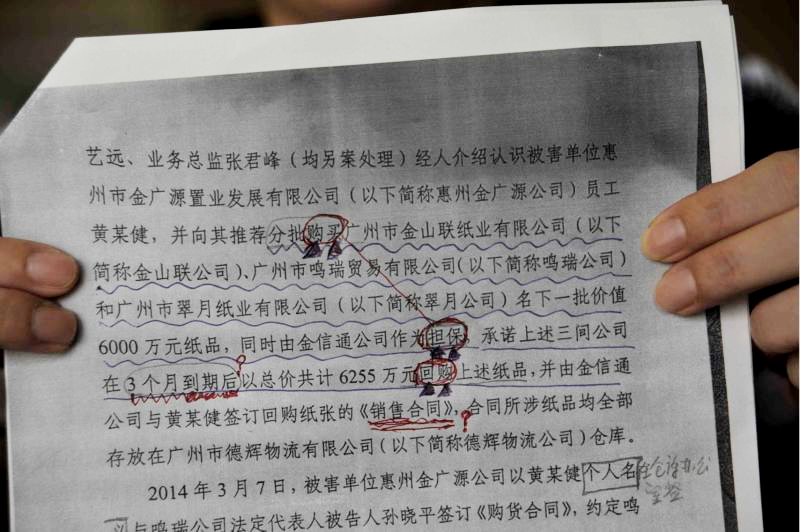 艺远、业务总监张君峰（均另案处理）经人介绍认识被害单位惠
州市金广源置业发展有限公司（以下简称惠州金广源公司）员工
黄某健，并向其推荐分批购买广州市金山联纸业有限公司（以下
简称金山联公司）、广州市鸣瑞贸易有限公司（以下简称鸣瑞公司）
和广州市翠月纸业有限公司（以下简称翠月公司）名下一批价值
6000 万元纸品，同时由金信通公司作为担保，承诺上述三间公司
在 3 个月到期后以总价共计 6255 万元回购上述纸品，并由金信通
公司与黄某健签订回购纸张的《销售合同》，合同所涉纸品均全部
存放在广州市德辉物流有限公司（以下简称德辉物流公司）仓库。
2014 年 3 月 7 日，被害单位惠州金广源公司以黄某健个人名
义与鸣瑞公司法定代表人被告人孙晓平签订《购货合同》，约定鸣